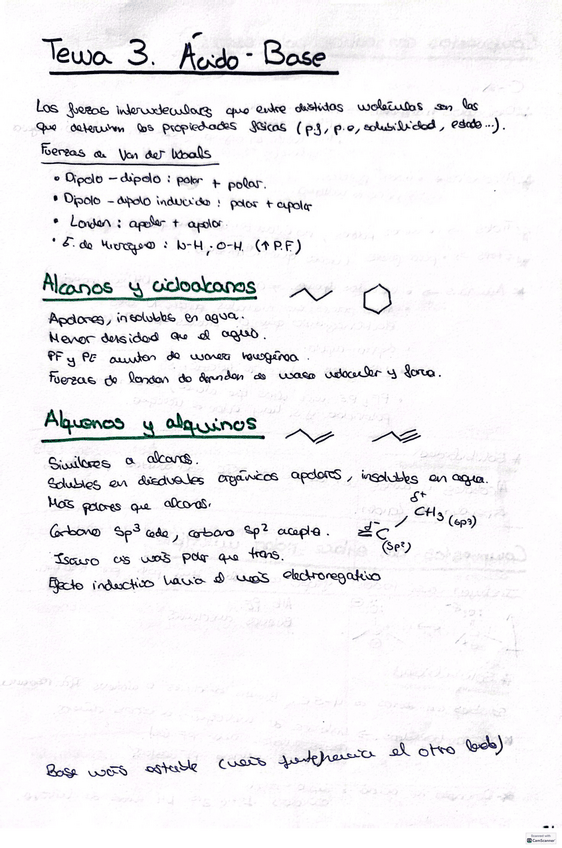 Tema 3. Ácido-Base
Las fuerzas intermoleculares que entre distintas moléculas son las
que determinan las propiedades físicas (p.f, p.e, solubilidad, estado...).
Fuerzas de Van der Waals
• Dipolo - dipolo : polar + polar.
• Dipolo - dipolo inducido : polar + apolar
• London : apolar + apolar
• E. de Hidrógeno : N-H ; O-H (↑ P.F)
Alcanos y cicloalcanos
Apolares, insolubles en agua.
Menor densidad que el agua.
PF y PE aumentan de manera homogénea.
Fuerzas de London dependen de masa molecular y forma.
Alquenos y alquinos
Similares a alcanos.
Solubles en disolventes orgánicos apolares, insolubles en agua.
Más polares que alcanos.
δ+
CH3 (sp3)
Carbono sp3 cede, carbono sp2 acepta.
δ-
=C
(sp2)
Isómero cis más polar que trans.
Efecto inductivo hacia el más electronegativo
Base más estable (más fuerte) hacia el otro lado)
Scanned with
CamScanner